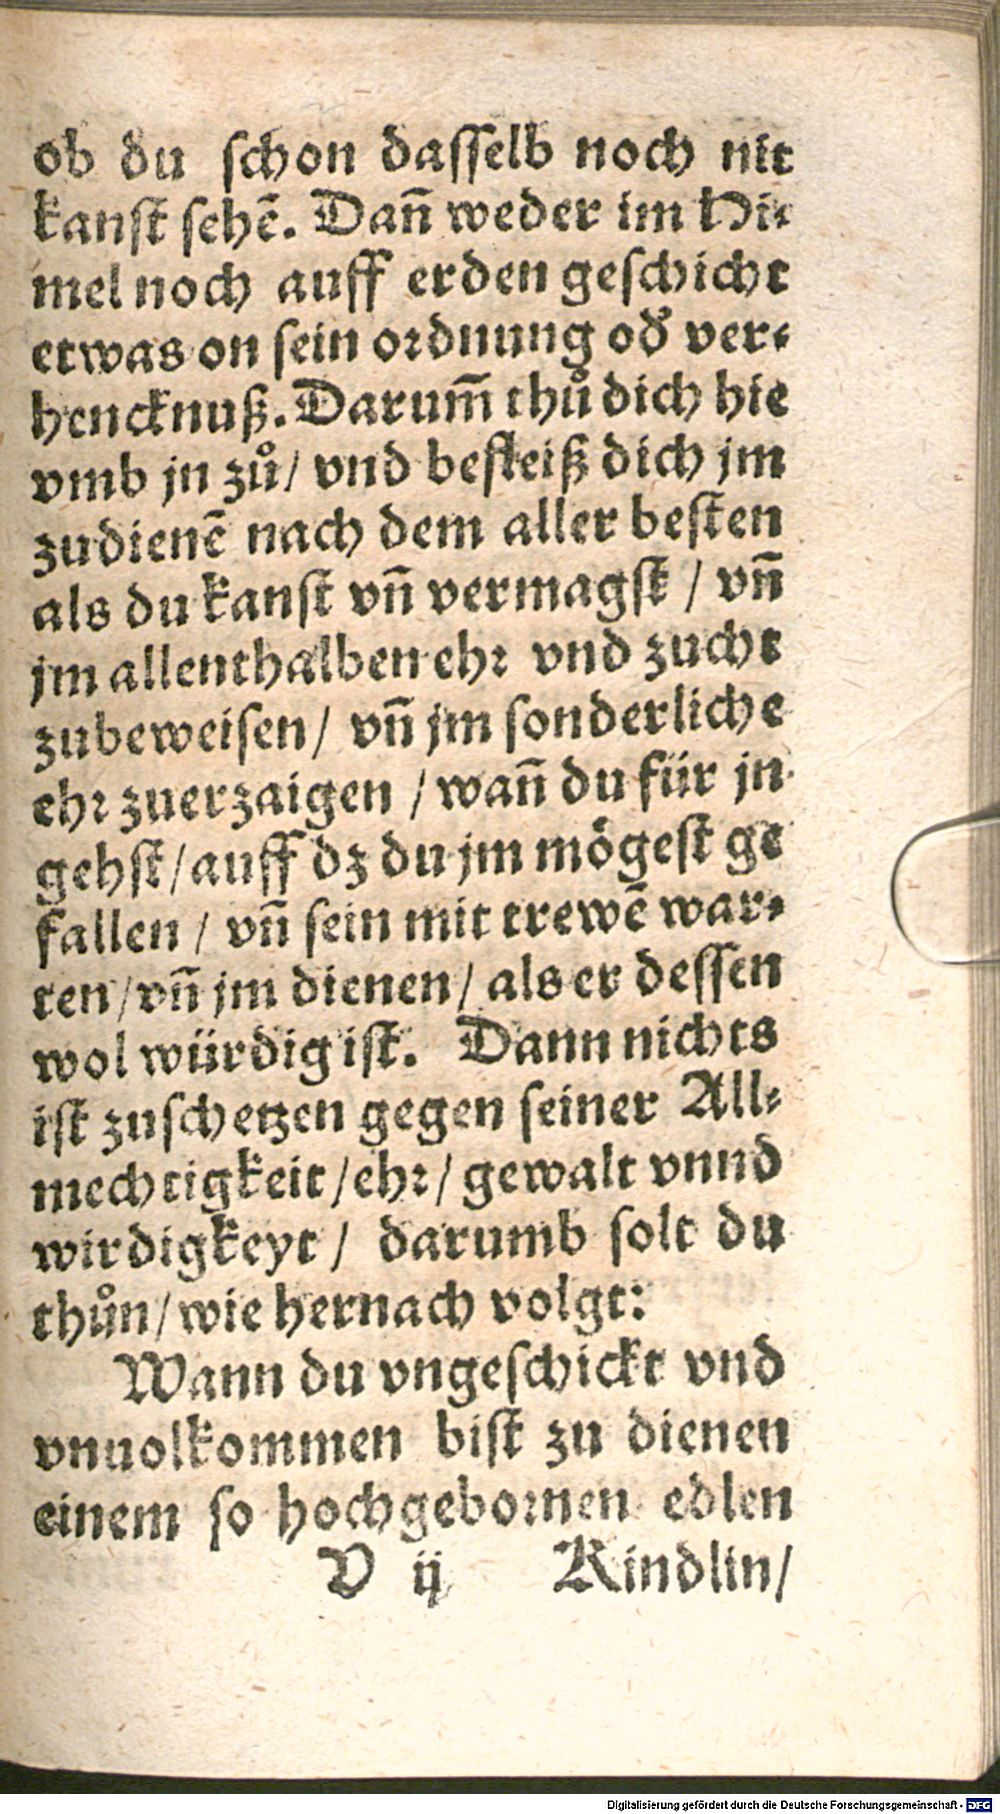 ob du ſchon daſſelb noch nit
kanſt ſehē. Dañ weder im Hi⸗
mel noch auff erden geſchicht
etwas on ſein ordnung od' ver⸗
hencknuß. Darum̃ thů dich hie
vmb jn zů/ vnd befleiß dich jm
zudienē nach dem aller beſten
als du kanſt vñ vermagſt / vñ
jm allenthalben ehꝛ vnd zucht
zubeweiſen/ vñ jm ſonderliche
ehꝛ zuerzaigen / wañ du für jn
gehſt/auff dz du jm mögeſt ge
fallen / vñ ſein mit trewē war⸗
ten/vñ jm dienen/ als er deſſen
wol würdig iſt. Dann nichts
iſt zuſchetzen gegen ſeiner All⸗
mechtigkeit/ehꝛ/ gewalt vnnd
wirdigkeyt / darumb ſolt du
thůn/wie hernach volgt:
Wann du vngeſchickt vnd
vnuolkommen biſt zu dienen
einem ſo hochgeboꝛnen edlen
V ij Kindlin/
Digitalisierung gefördert durch die Deutsche Forschungsgemeinschaft - DFG